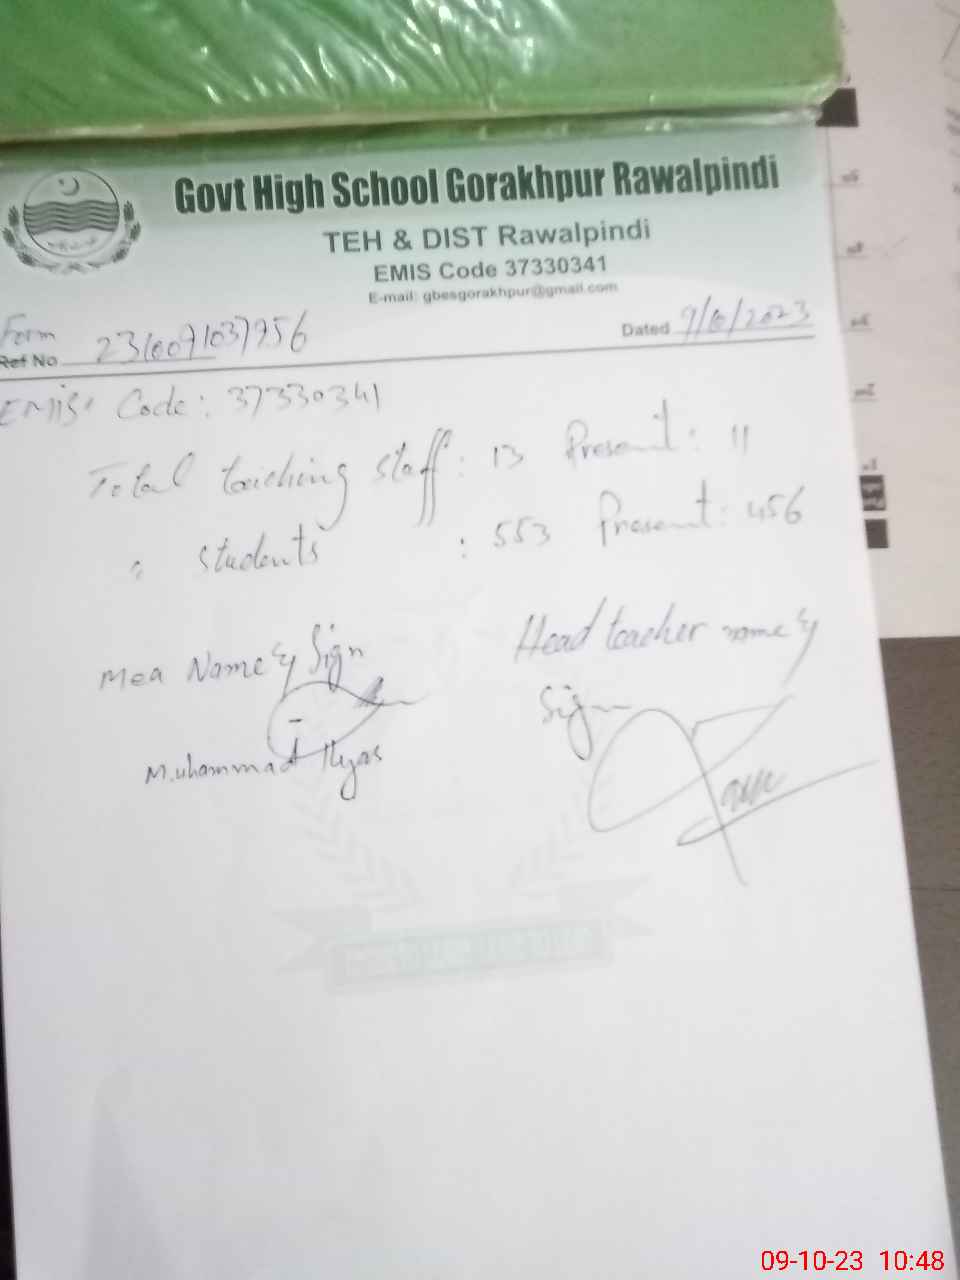 Govt High School Gorakhpur Rawalpindi
TEH & DIST Rawalpindi
EMIS Code 37330341
E-mail: gbesgorakhpur@gmail.com
Form
Ref No 2310091037956 Dated 9/10/2023
EMIS. Code: 37330341
Total taiching staff: 13 Present: 11
" students : 553 Present: 456
Mea Name & Sign
Head teacher name &
Sign
Muhammad Ilyas
09-10-23 10:48